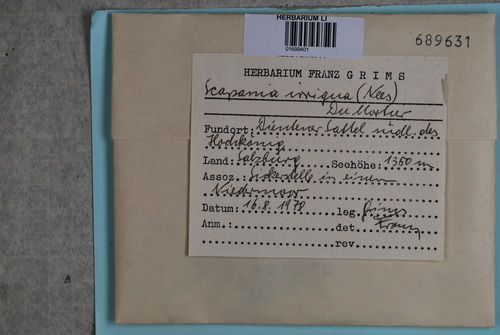 HERBARIUM LI
01699401
689631
HERBARIUM FRANZ GRIMS
Scapania irrigua (Nees)
Du Mortier
Fundort: Dientner Sattel südl. des
Hochkönig
Land: Salzburg Seehöhe: 1360 m
Assoz.: Sickerstelle in einem
Niedermoor
Datum: 16.8.1978 leg. Grims
Anm.: det. Franz
rev.